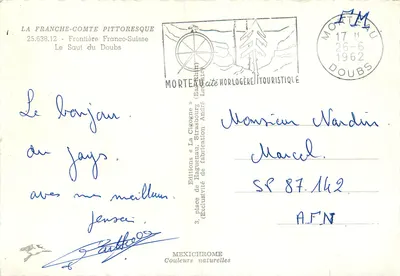 LA FRANCHE-COMTE PITTORESQUE
25.638.12 - Frontière Franco-Suisse
Le Saut du Doubs
MORTEAU cité HORLOGÈRE TOURISTIQUE
MORTEAU
17 H
26-6
1962
DOUBS
F.M.
Le bonjour
du pays.
avec mes meilleurs
pensées
Editions « La Cigogne »
3, place de Haguenau, Strasbourg
Monsieur Nardin
Marcel.
SP 87.142
AFN
MEXICHROME
Couleurs naturelles